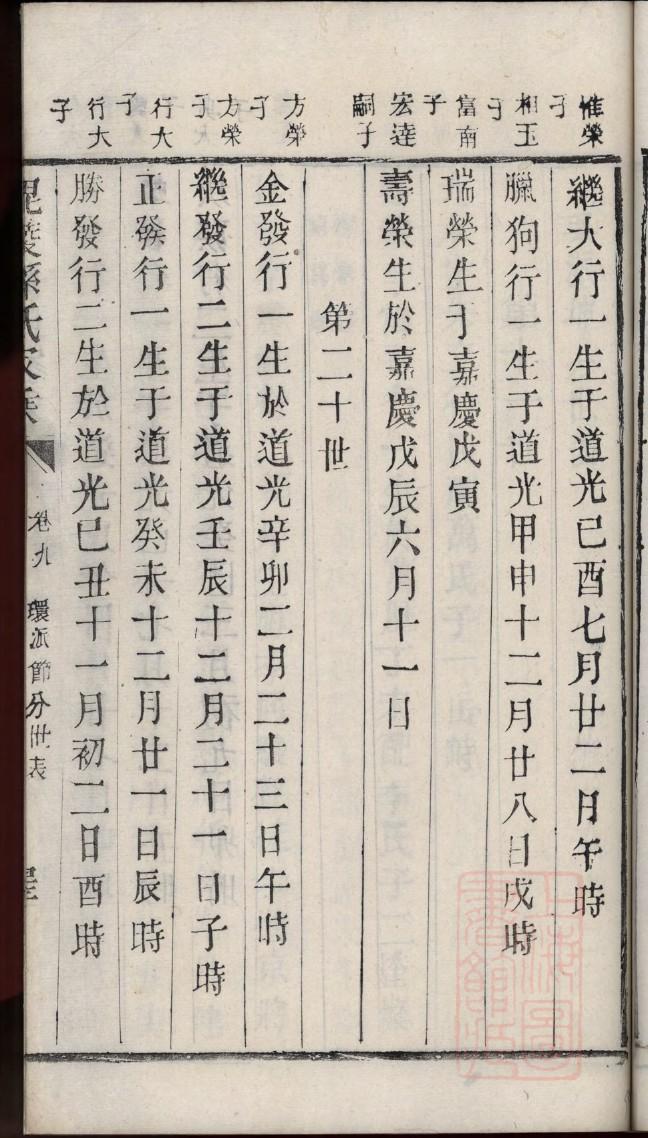 惟榮子
繼大行一生于道光己酉七月廿二日午時
相玉子
臘狗行一生于道光甲申十二月廿八日戌時
富南子
瑞榮生于嘉慶戊寅
宏達嗣子
壽榮生於嘉慶戊辰六月十一日
第二十世
方榮子
金發行一生於道光辛卯二月二十三日午時
方榮子
繼發行二生于道光壬辰十二月二十一日子時
行大子
正發行一生于道光癸未十二月廿一日辰時
行大子
勝發行二生於道光己丑十一月初二日酉時
孫氏家族
卷九 環派節分世表
上海圖書館藏